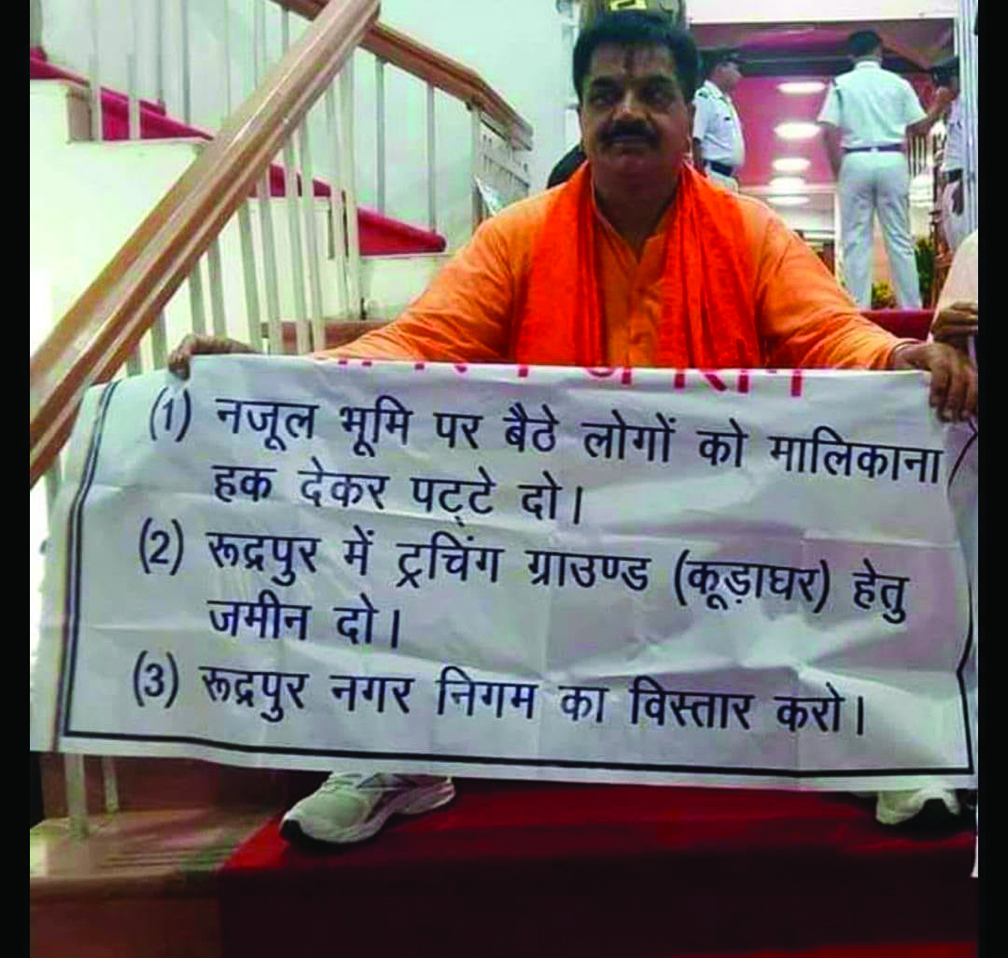 (1) नजूल भूमि पर बैठे लोगों को मालिकाना
हक देकर पट्टे दो।
(2) रूद्रपुर में ट्रचिंग ग्राउण्ड (कूड़ाघर) हेतु
जमीन दो।
(3) रूद्रपुर नगर निगम का विस्तार करो।